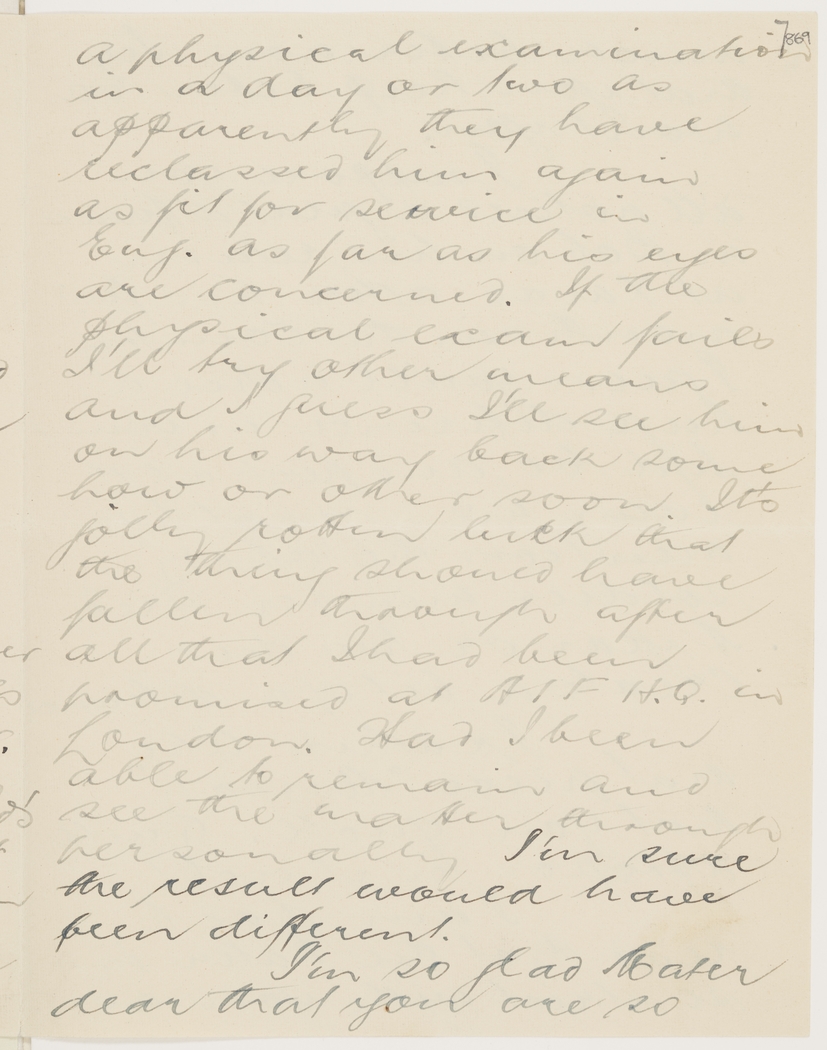 7/869
a physical examination
in a day or two as
apparently they have
reclassed him again
as fit for service in
Eng. as far as his eyes
are concerned. If the
physical exam fails
I'll try other means
and I guess I'll see him
on his way back some
how or other soon. It's
jolly rotten luck that
the thing should have
fallen through after
all that I had been
promised at AIF H.Q. in
London. Had I been
able to remain and
see the matter through
personally I'm sure
the result would have
been different.
I'm so glad Mater
dear that you are so